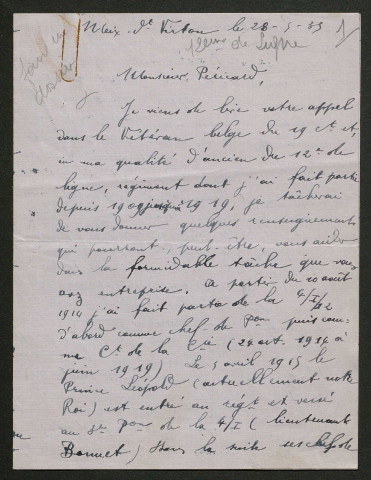 Meix-dt Virton le 28-5-35
12eme de Ligne
1/
Monsieur Péricard,
Je viens de lire votre appel
dans le Vétéran belge du 19 ct et,
en ma qualité d'ancien du 12e de
ligne, régiment dont j'ai fait partie
depuis 1909 jusqu'à 1919, je tâcherai
de vous donner quelques renseignements
qui pourront, peut-être, vous aider
dans la formidable tâche que vous
avez entreprise. A partir du 10 août
1914 j'ai fait partie de la 4/I/12
d'abord comme chef de Pon puis com-
me Ct de la Cie (24 oct. 1914 à
juin 1919) Le 5 avril 1915 le
Prince Léopold (actuellement notre
Roi) est entré au régt et versé
au 3e Pon de la 4/I (lieutenant
Bonnet) Dans la suite